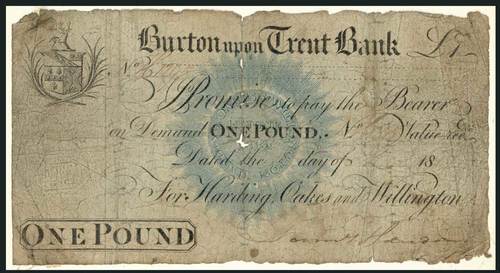 Burton upon Trent Bank £1
No
I Promise to pay the Bearer
on Demand ONE POUND. No Value recd
Dated the day of 18
For Harding, Oakes and Willington
ONE POUND